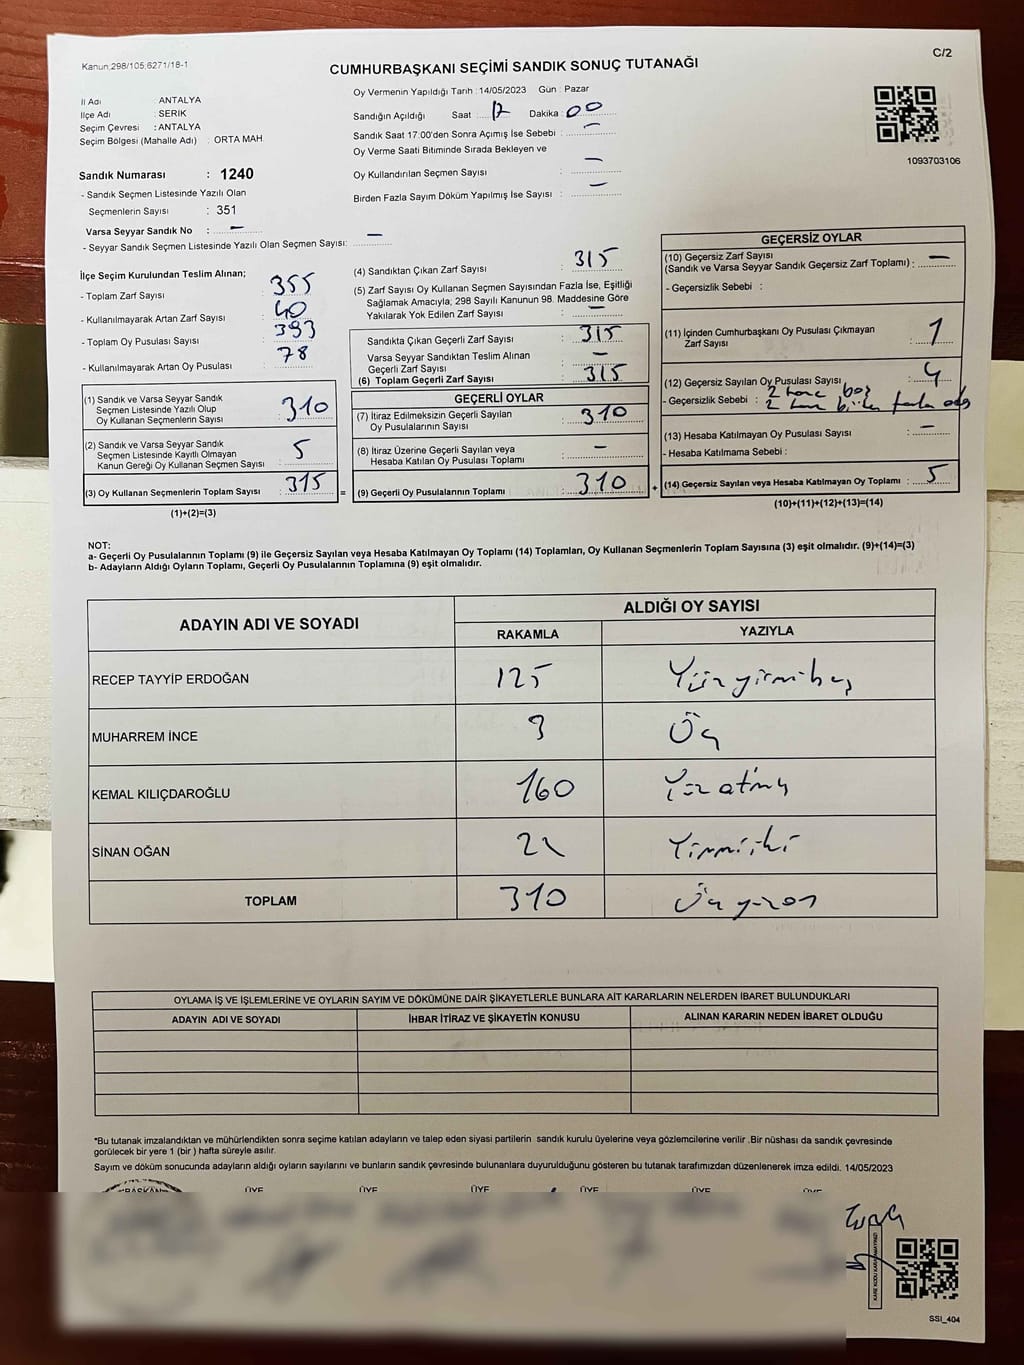 Kanun:298/105,6271/18-1
C/2
CUMHURBAŞKANI SEÇİMİ SANDIK SONUÇ TUTANAĞI
İl Adı : ANTALYA
İlçe Adı : SERİK
Seçim Çevresi : ANTALYA
Seçim Bölgesi (Mahalle Adı) : ORTA MAH
Sandık Numarası : 1240
- Sandık Seçmen Listesinde Yazılı Olan
Seçmenlerin Sayısı : 351
Varsa Seyyar Sandık No : -
- Seyyar Sandık Seçmen Listesinde Yazılı Olan Seçmen Sayısı: -
Oy Vermenin Yapıldığı Tarih : 14/05/2023 Gün : Pazar
Sandığın Açıldığı Saat : 17 Dakika : 00
Sandık Saat 17:00'den Sonra Açımış İse Sebebi : -
Oy Verme Saati Bitiminde Sırada Bekleyen ve
Oy Kullandırılan Seçmen Sayısı : -
Birden Fazla Sayım Döküm Yapılmış İse Sayısı : -
1093703106
İlçe Seçim Kurulundan Teslim Alınan;
- Toplam Zarf Sayısı : 355
- Kullanılmayarak Artan Zarf Sayısı : 40
- Toplam Oy Pusulası Sayısı : 393
- Kullanılmayarak Artan Oy Pusulası : 78
(1) Sandık ve Varsa Seyyar Sandık
Seçmen Listesinde Yazılı Olup
Oy Kullanan Seçmenlerin Sayısı : 310
(2) Sandık ve Varsa Seyyar Sandık
Seçmen Listesinde Kayıtlı Olmayan
Kanun Gereği Oy Kullanan Seçmen Sayısı : 5
(3) Oy Kullanan Seçmenlerin Toplam Sayısı : 315
(1)+(2)=(3)
(4) Sandıktan Çıkan Zarf Sayısı : 315
(5) Zarf Sayısı Oy Kullanan Seçmen Sayısından Fazla İse, Eşitliği
Sağlamak Amacıyla; 298 Sayılı Kanunun 98. Maddesine Göre
Yakılarak Yok Edilen Zarf Sayısı : -
Sandıkta Çıkan Geçerli Zarf Sayısı : 315
Varsa Seyyar Sandıktan Teslim Alınan
Geçerli Zarf Sayısı : -
(6) Toplam Geçerli Zarf Sayısı : 315
GEÇERLİ OYLAR
(7) İtiraz Edilmeksizin Geçerli Sayılan
Oy Pusulalarının Sayısı : 310
(8) İtiraz Üzerine Geçerli Sayılan veya
Hesaba Katılan Oy Pusulası Toplamı : -
= (9) Geçerli Oy Pusulalarının Toplamı : 310
GEÇERSİZ OYLAR
(10) Geçersiz Zarf Sayısı
(Sandık ve Varsa Seyyar Sandık Geçersiz Zarf Toplamı) : -
- Geçersizlik Sebebi :
(11) İçinden Cumhurbaşkanı Oy Pusulası Çıkmayan
Zarf Sayısı : 1
(12) Geçersiz Sayılan Oy Pusulası Sayısı : 4
- Geçersizlik Sebebi : 2 tane boş
2 tane fazla
(13) Hesaba Katılmayan Oy Pusulası Sayısı : -
- Hesaba Katılmama Sebebi :
+ (14) Geçersiz Sayılan veya Hesaba Katılmayan Oy Toplamı : 5
(10)+(11)+(12)+(13)=(14)
NOT:
a- Geçerli Oy Pusulalarının Toplamı (9) ile Geçersiz Sayılan veya Hesaba Katılmayan Oy Toplamı (14) Toplamları, Oy Kullanan Seçmenlerin Toplam Sayısına (3) eşit olmalıdır. (9)+(14)=(3)
b- Adayların Aldığı Oyların Toplamı, Geçerli Oy Pusulalarının Toplamına (9) eşit olmalıdır.
ADAYIN ADI VE SOYADI
ALDIĞI OY SAYISI
RAKAMLA YAZIYLA
RECEP TAYYİP ERDOĞAN 125 Yüzyirmibeş
MUHARREM İNCE 3 Üç
KEMAL KILIÇDAROĞLU 160 Yüzatmış
SİNAN OĞAN 22 Yirmiiki
TOPLAM 310 Üçyüzon
OYLAMA İŞ VE İŞLEMLERİNE VE OYLARIN SAYIM VE DÖKÜMÜNE DAİR ŞİKAYETLERLE BUNLARA AİT KARARLARIN NELERDEN İBARET BULUNDUKLARI
ADAYIN ADI VE SOYADI İHBAR İTİRAZ VE ŞİKAYETİN KONUSU ALINAN KARARIN NEDEN İBARET OLDUĞU
*Bu tutanak imzalandıktan ve mühürlendikten sonra seçime katılan adayların ve talep eden siyasi partilerin sandık kurulu üyelerine veya gözlemcilerine verilir .Bir nüshası da sandık çevresinde
görülecek bir yere 1 (bir ) hafta süreyle asılır.
Sayım ve döküm sonucunda adayların aldığı oyların sayılarını ve bunların sandık çevresinde bulunanlara duyurulduğunu gösteren bu tutanak tarafımızdan düzenlenerek imza edildi. 14/05/2023
BAŞKAN ÜYE ÜYE ÜYE ÜYE ÜYE ÜYE
SSI_404